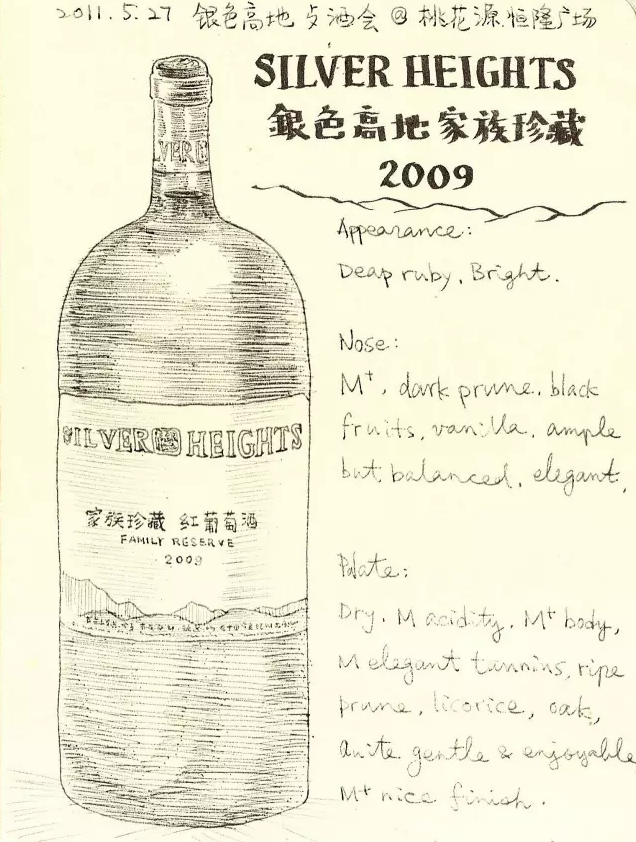 2011.5.27 银色高地 攴酒会 @ 桃花源 恒隆广场
SILVER HEIGHTS
銀色高地家族珍藏
2009
Appearance:
Deap ruby, Bright.
Nose:
M+, dark prune, black
fruits, vanilla, ample
but balanced, elegant,
Palate:
Dry, M acidity, M+ body,
M elegant tannins, ripe
prune, licorice, oak,
quite gentle & enjoyable
M+ nice finish.
LVER
SILVER HEIGHTS
家族珍藏 红葡萄酒
FAMILY RESERVE
2009